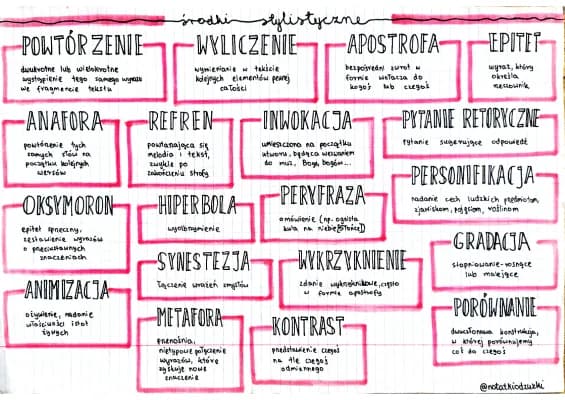 środki stylistyczne
POWTÓRZENIE
dwukrotne lub wielokrotne
wystąpienie tego samego wyrazu
we fragmencie tekstu
WYLICZENIE
wymienianie w tekście
kolejnych elementów pewnej
całości
APOSTROFA
bezpośredni zwrot w
formie wołacza do
kogoś lub czegoś
EPITET
wyraz, który
określa
rzeczownik
ANAFORA
powtórzenie tych
samych słów na
początku kolejnych
wersów
REFREN
powtarzająca się
melodia i tekst,
zwykle po
zakończeniu strofy
INWOKACJA
umieszczona na początku
utworu, będąca wezwaniem
do muz, Boga, bogów...
PYTANIE RETORYCZNE
pytanie sugerujące odpowiedź
PERSONIFIKACJA
nadanie cech ludzkich przedmiotom,
zjawiskom, pojęciom, roślinom
OKSYMORON
epitet sprzeczny,
zestawienie wyrazów
o przeciwstawnych
znaczeniach
HIPERBOLA
wyolbrzymienie
PERYFRAZA
omówienie (np. ognista
kula na niebie [słońce])
GRADACJA
stopniowanie-rosnące
lub malejące
SYNESTEZJA
łączenie wrażeń zmysłów
WYKRZYKNIENIE
zdanie wykrzyknikowe, często
w formie apostrofy
ANIMIZACJA
ożywienie, nadanie
właściwości istot
żywych
METAFORA
przenośnia,
nietypowe połączenie
wyrazów, które
zyskuje nowe
znaczenie
KONTRAST
przedstawienie czegoś
na tle czegoś
odmiennego
PORÓWNANIE
dwuczłonowa konstrukcja,
w której porównujemy
coś do czegoś
@notatkiodzuzki